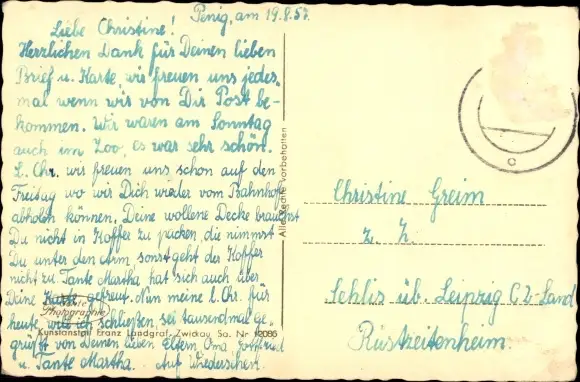 Penig, am 19.8.57.
Liebe Christine!
Herzlichen Dank für Deinen lieben
Brief u. Karte wir freuen uns jedes-
mal wenn wir von Dir Post be-
kommen. Wir waren am Sonntag
auch im Zoo, es war sehr schön.
L. Chr. wir freuen uns schon auf den
Freitag wo wir Dich wieder vom Bahnhof
abholen können. Deine wollene Decke brauchst
Du nicht in Koffer zu packen, die nimmst
Du unter den Arm sonst geht der Koffer
nicht zu. Tante Martha hat sich auch über
Deine Karte gefreut. Nun meine l. Chr. für
heute, will ich schließen, sei tausendmal ge-
grüßt von Deinen lieben Eltern Oma, Gottfried
u. Tante Martha. Auf Wiedersehen.
Photographie
Kunstanstalt Franz Landgraf, Zwickau Sa. Nr.
Alle Rechte vorbehalten
Christine Greim
z. Z.
Sehlis üb. Leipzig C2-Land
Rüstzeitenheim.